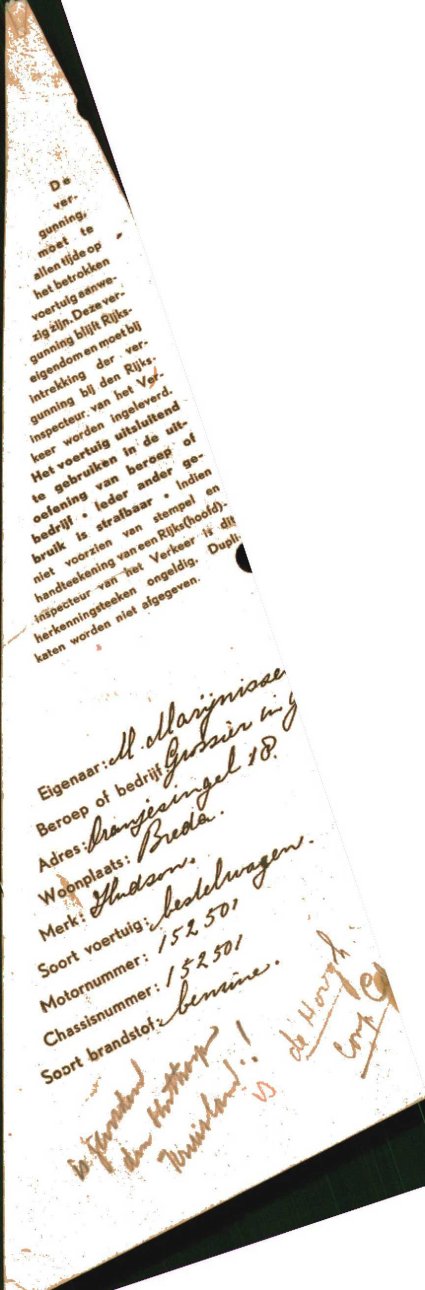 De
ver-
gunning,
moet te
allen tijde op
het betrokken
voertuig aanwe-
zig zijn. Deze ver-
gunning blijft Rijks-
eigendom en moet bij
intrekking der ver-
gunning bij den Rijks-
inspecteur van het Ver-
keer worden ingeleverd.
Het voertuig uitsluitend
te gebruiken in de uit-
oefening van beroep of
bedrijf • Ieder ander ge-
bruik is strafbaar • Indien
niet voorzien van stempel en
handteekening van een Rijks(hoofd)-
inspecteur van het Verkeer is dit
herkenningsteeken ongeldig. Dupli-
katen worden niet afgegeven.
Eigenaar: M. Marijnisse
Beroep of bedrijf: Grossier in g
Adres: Oranjesingel 18.
Woonplaats: Breda.
Merk: Hudson.
Soort voertuig: bestelwagen.
Motornummer: 152501
Chassisnummer: 152501
Soort brandstof: benzine.
is gevonden
den
Kruisland!!
de Hoogh